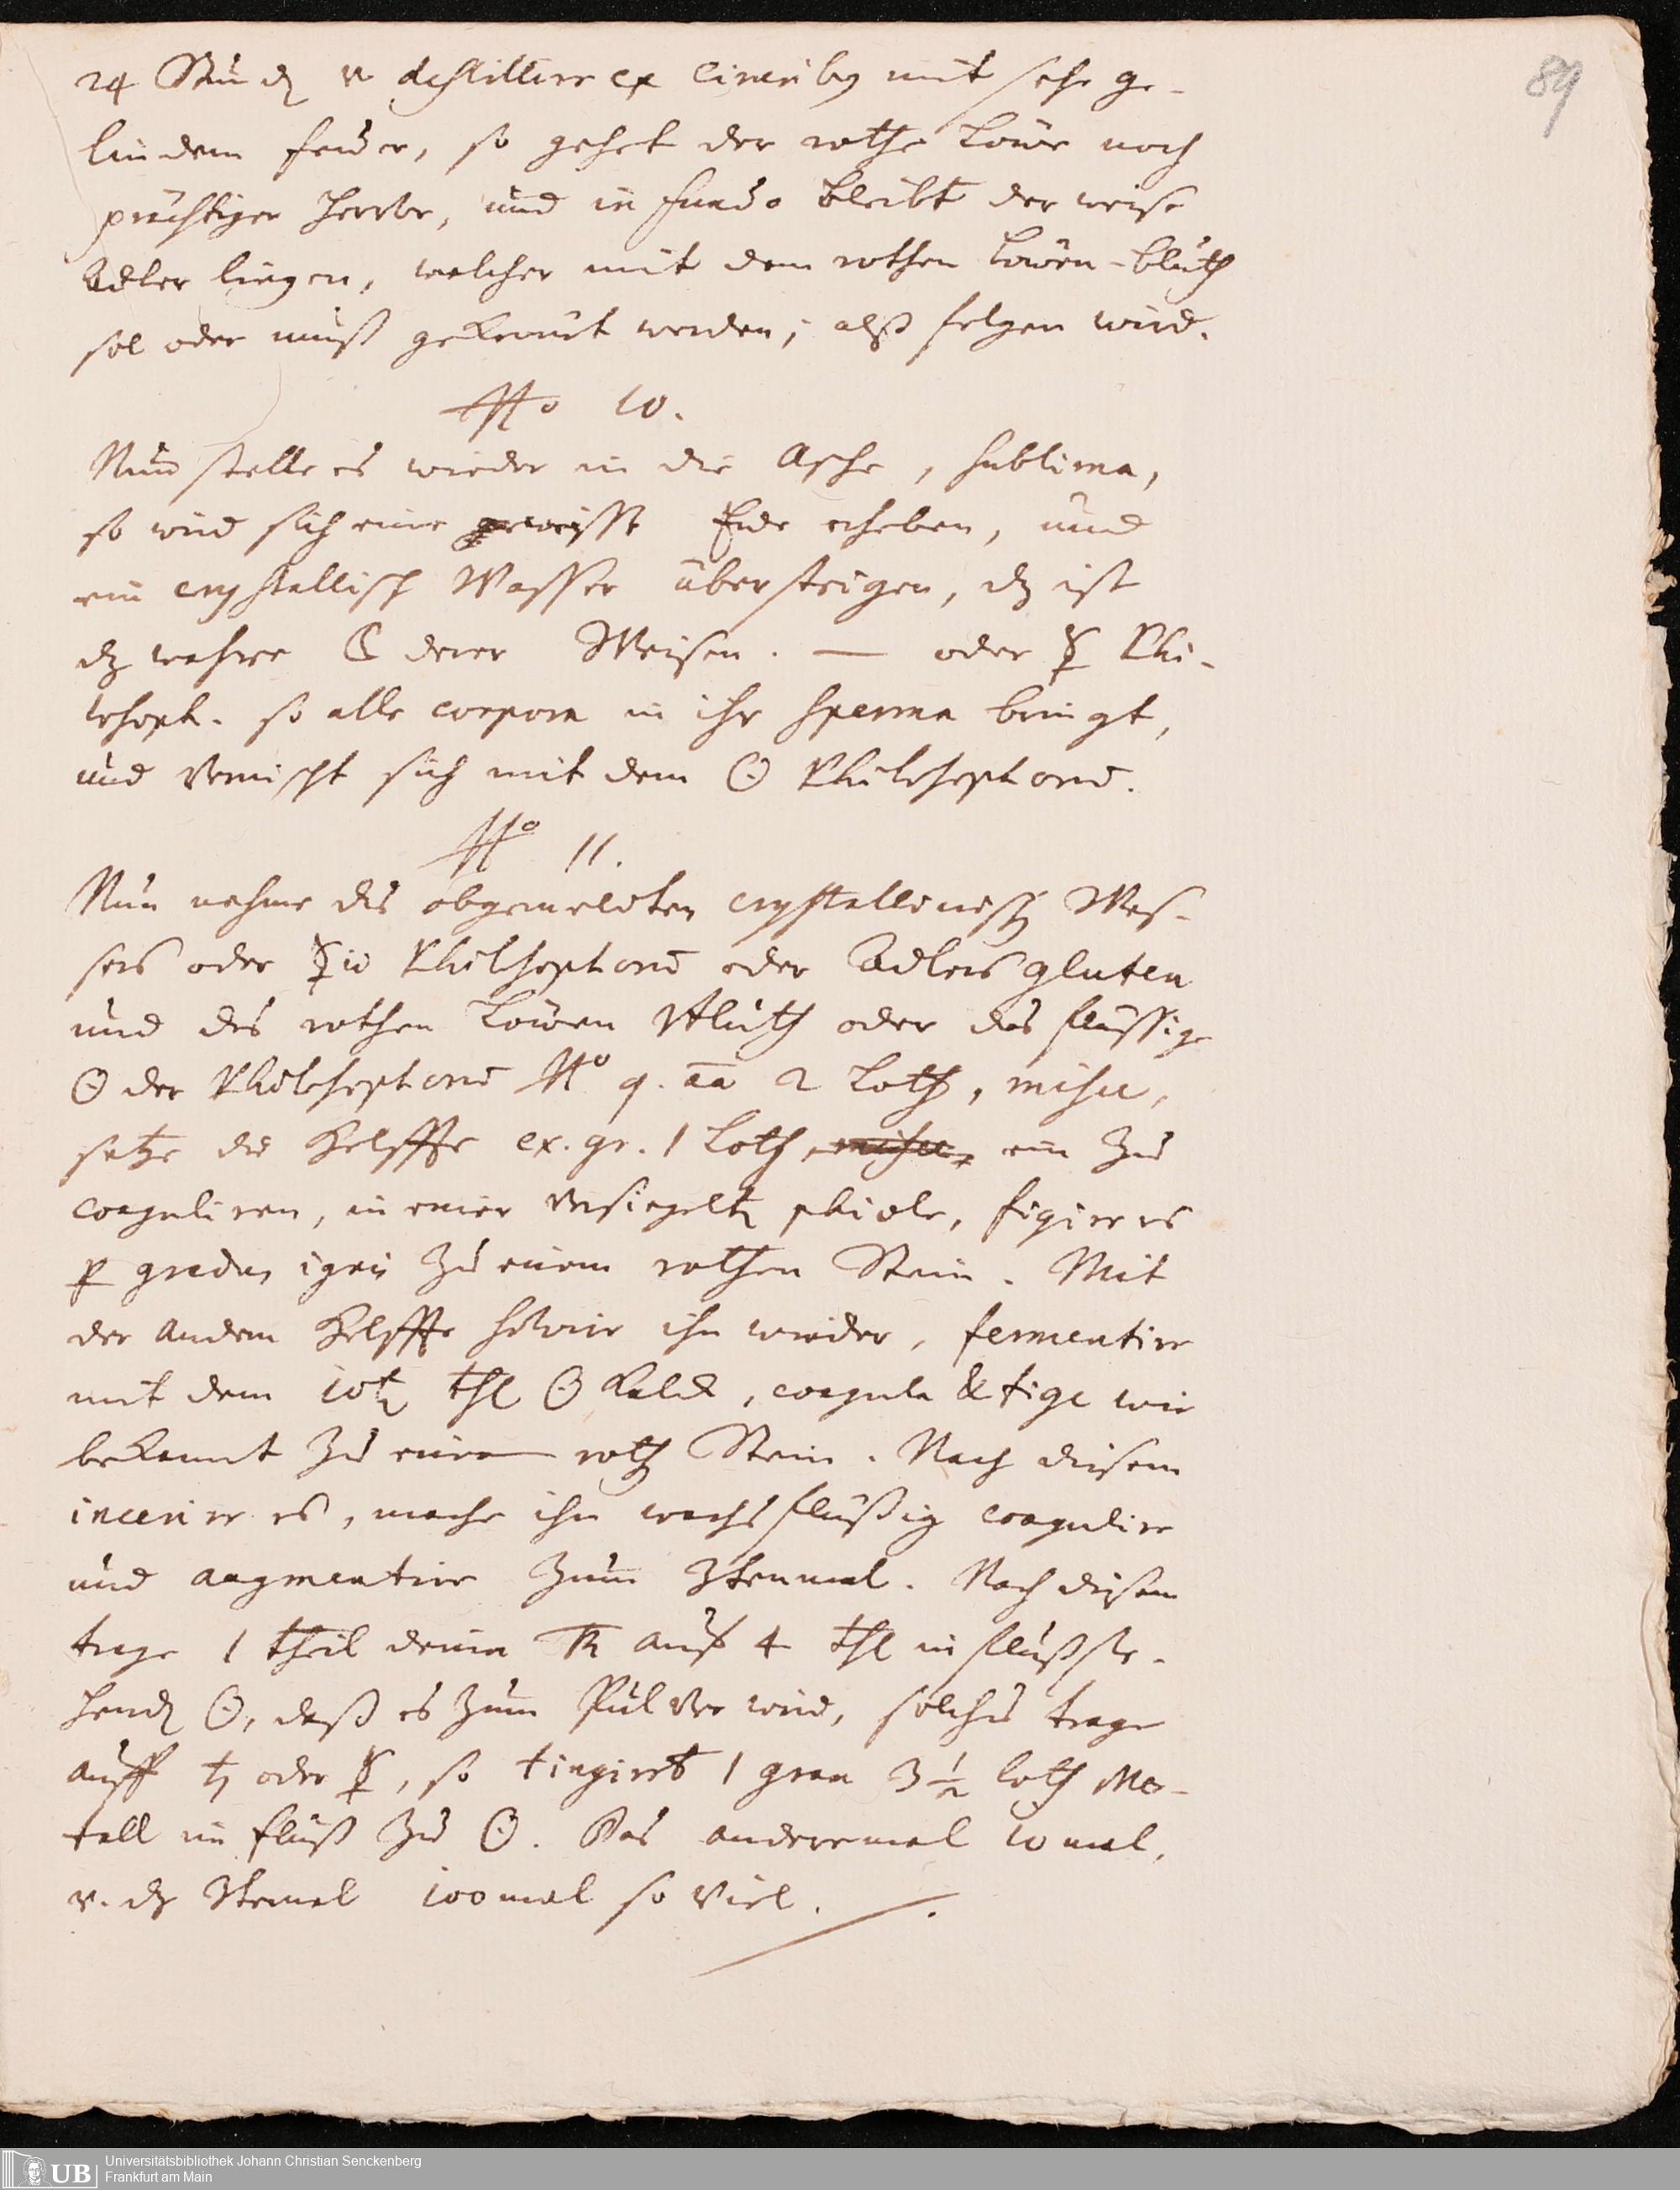 89
24 Stund. u destillire ex cineribus mit sehr ge-
lindem feuer, so gehet der rothe Löwe noch
prächtiger herüber, und in fundo bleibt der weise
Adler liegen, welcher mit dem rothen Löwen-bluth
sol oder muß getränckt werden, alß folgen wird.
No 10.
Nun stelle es wieder in die Asche, sublima,
so wird sich eine gewisse Erde erheben, und
ein crystallisch Wasser übersteigen, dz ist
dz wahre ☾ derer Weisen. — oder ☿ Phi-
losoph. so alle corpora in ihr sperma bringt,
und vermischt sich mit dem ☉ Philosophorū.
No 11.
Nun nehme des obgemeldten crystallinisch Was-
sers oder ☿ii Philosophorū oder Adlers gluten
und des rothen Löwen Bluth oder das flüssige
☉ der Philosophorū No 9. āā 2 Loth, misce,
setze die Helffte ex. gr. 1 Loth, misce, ein zu
coaguliren, in einer versiegelt phiole, figire es
p gradus ignis zu einem rothen Stein. Mit
der andern Helffte solvire ihn wieder, fermentire
mit dem 10t thl ☉ Kalck, coagula & fige wie
bekannt zu einem roth Stein. Nach diesem
incerire es, mache ihn wachsflüßig coagulire
und augmentire zum 3tenmal. Nach diesem
trage 1 theil deiner Tr auf 4 thl in fluß ste-
hend ☉, daß es zum Pulver wird, solches trage
auff ♄ oder ☿, so tingiret 1 gran 3 1/2 loth Me-
tall im fluß zu ☉. Das anderemal 10 mal,
u. dz 3temal 100mal so viel.
UB
Universitätsbibliothek Johann Christian Senckenberg
Frankfurt am Main